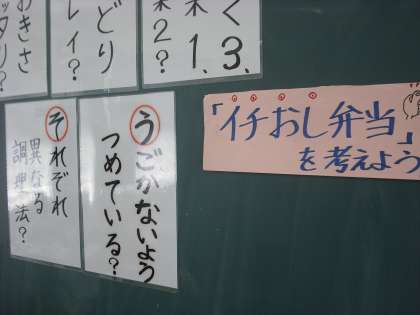 おきさ
ッタリ?
どり
レイ?
1、3、
2?
うごかないよう
つめている?
それぞれ
異なる
調理法?
「イチおし弁当」
を考えよう